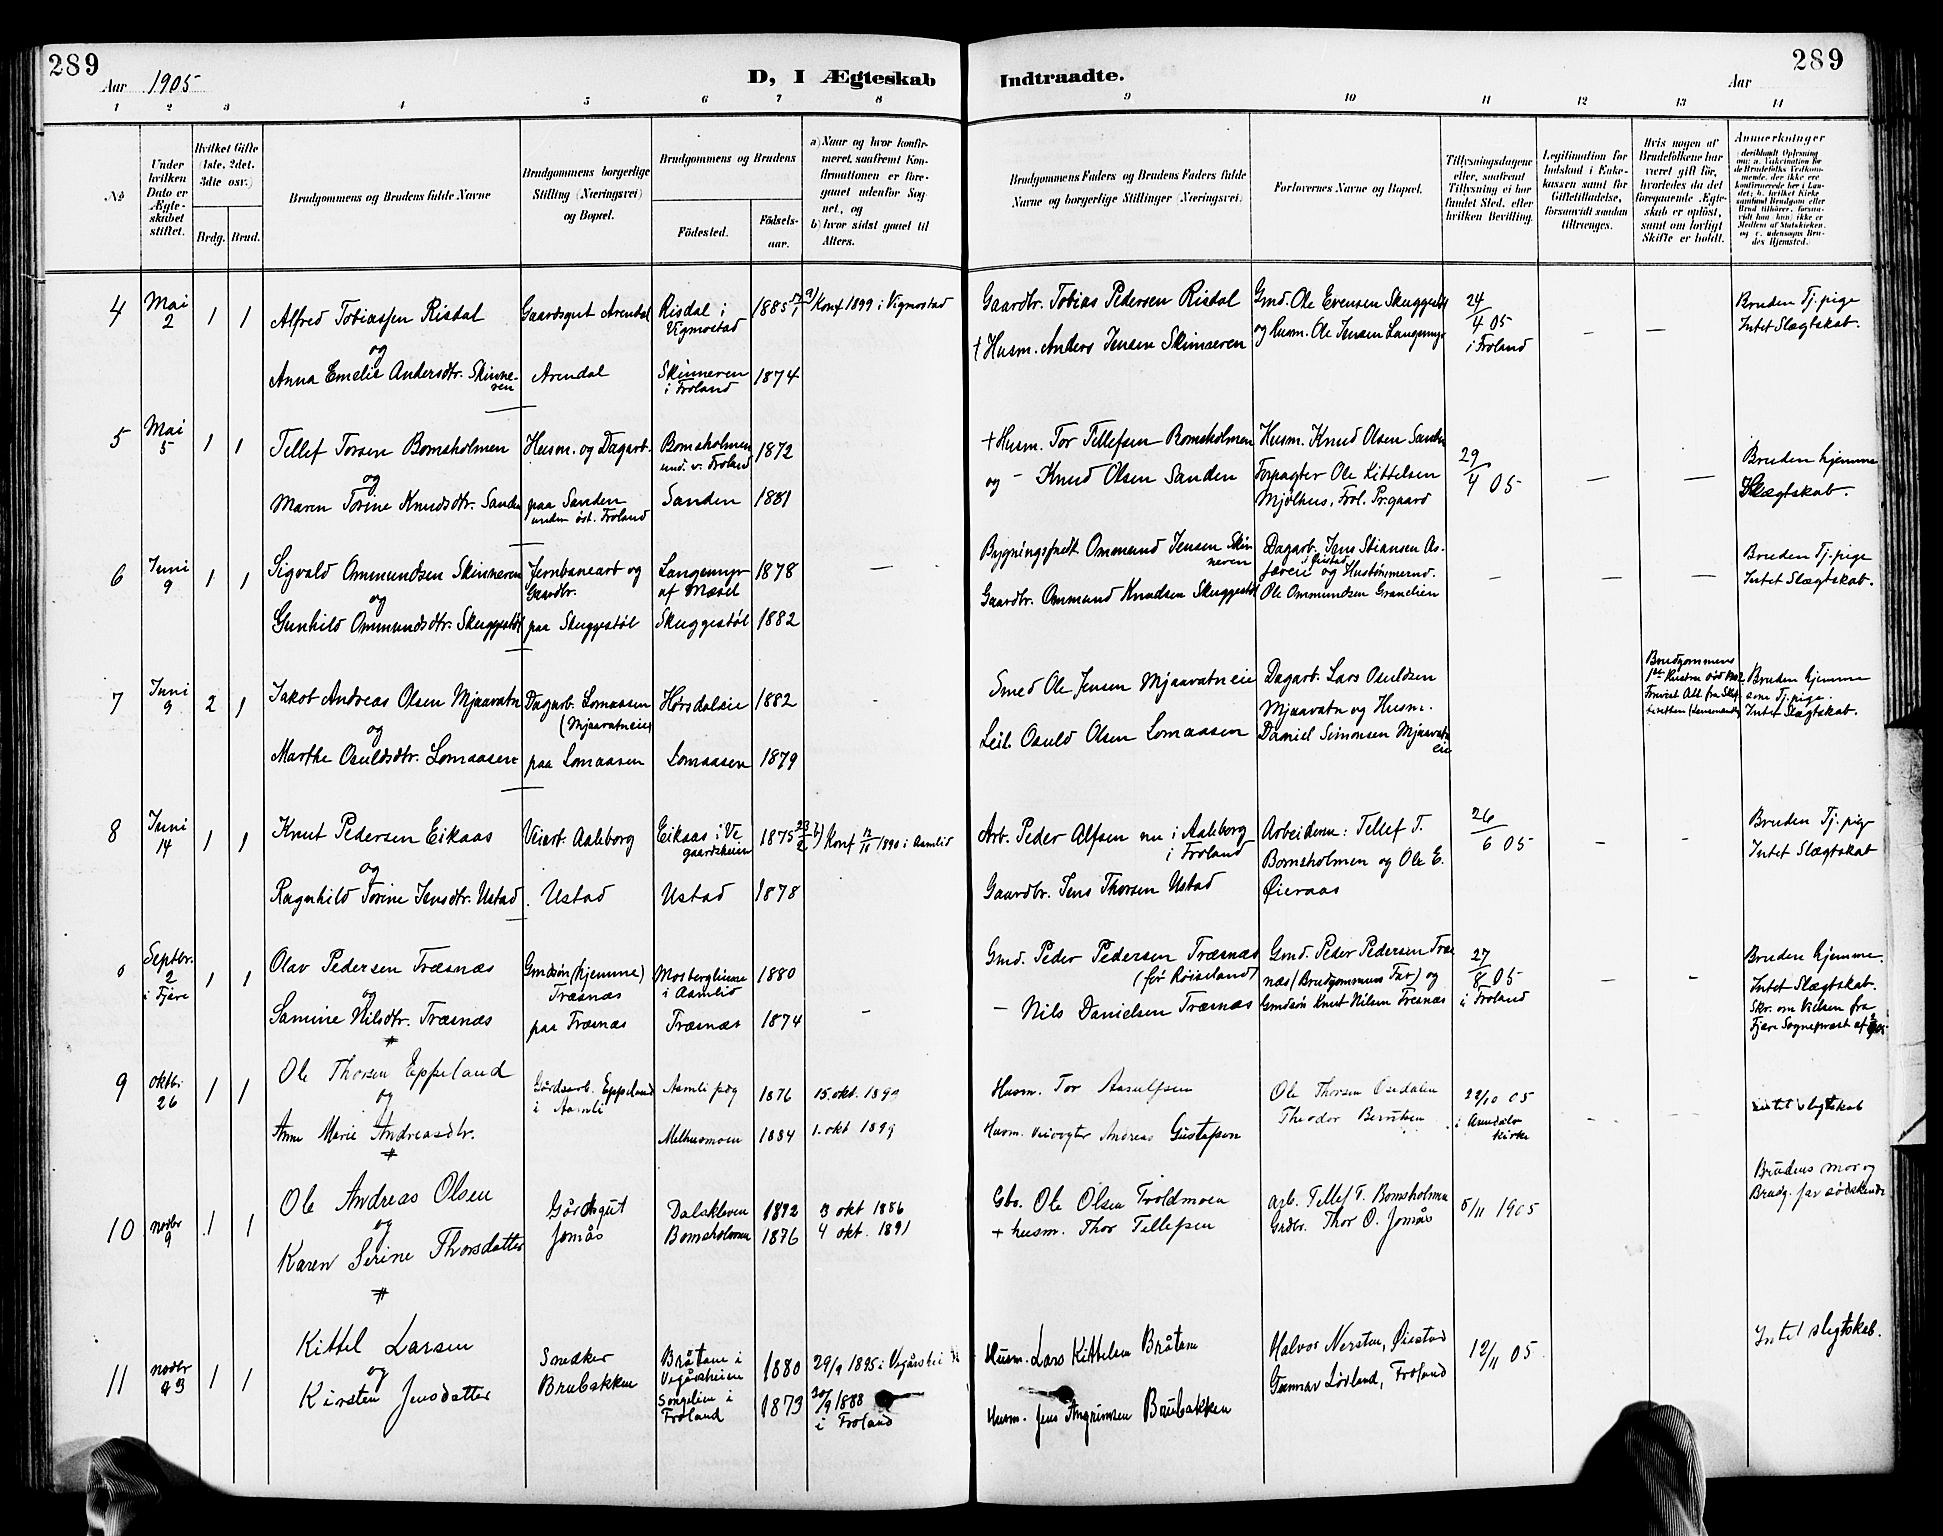 289
Aar 1905
D, I Ægteskab
Indtraadte.
Aar
289
1 2 3 4 5 6 7 8 9 10 11 12 13 14
No
Under hvilken Dato er Ægteskabet stiftet.
Hvilket Gifte (1ste, 2det, 3dte osv.)
Brdg. Brud.
Brudgommens og Brudens fulde Navne
Brudgommens borgerlige Stilling (Næringsvei) og Bopæl.
Brudgommens og Brudens
Födested.
Födselsaar.
a) Naar og hvor konfirmeret, saafremt Konfirmationen er foregaaet udenfor Sognet, og
b) hvor sidst gaaet til Alters.
Brudgommens Faders og Brudens Faders fulde Navne og borgerlige Stillinger (Næringsvei)
Forlovernes Navne og Bopæl.
Tillysningsdagene eller, saafremt Tillysning ei har fundet Sted, efter hvilken Bevilling.
Legitimation for Indskud i Enkekassen samt for Giftetilladelse, forsaavidt saadan tiltrænges.
Hvis nogen af Brudefolkene har været gift før, hvorledes da det foregaaende Ægteskab er opløst, samt om lovligt Skifte er holdt.
Anmerkninger
4
Mai 2
1 1
Alfred Tobiassen Risdal
og
Anna Emelie Andersdtr. Skinneren
Gaardsgut Arendal
Arendal
Risdal i Vigmostad
Skinneren i Froland
1885
1874
a) Konf 1899 i Vigmostad
Gaardbr. Tobias Pedersen Risdal
† Husm. Anders Jensen Skinneren
Gmd. Ole Evensen Skuggestöl
og husm. Ole Jensen Langemyr
24/4 05 i Froland
Bruden Tj. pige
Intet Slægtskab.
5
Mai 5
1 1
Tellef Torsen Bomsholmen
og
Maren Torine Knudsdtr. Sanden
Husm. og Dagarb.
paa Sanden under öst. Froland
Bomsholmen und. v. Froland
Sanden
1872
1881
+ Husm. Tor Tellefsen Bomsholmen
og - Knud Olsen Sanden
Husm. Knud Olsen Sanden
Forpagter Ole Kittelsen
Mjølhus, Frol. Pr.gaard
29/4 05
Bruden hjemme
Slægtskab.
6
Juni 9
1 1
Sigvald Ommundsen Skinneren
og
Gunhild Ommundsdtr. Skuggestöl
Jernbanearb og Gaardbr.
paa Skuggestöl
Langemyr af Mæsel
Skuggestöl
1878
1882
Ommund Jensen Skinneren
Gaardbr. Ommund Knudsen Skuggestöl
Dagarb. Jens Stiansen
og Hustömmerm.
Ole Ommundsen Granelien
Bruden Tj. pige
Intet Slægtskab.
7
Juni 9
2 1
Jakob Andreas Olsen Mjaavatn
og
Marthe Osuldsdtr. Lomaasen
Dagarb. Lomaasen (Mjaavatneie)
paa Lomaasen
Hörsdaleie
Lomaasen
1882
1879
Smed Ole Jensen Mjaavatneie
Leil. Osuld Olsen Lomaasen
Dagarb. Lars Osuldsen
Mjaavatn og Husm.
Daniel Simonsen Mjaavatneie
Brudgommens 1ste Hustru død
Bruden hjemme som Tj. pige.
Intet Slægtskab.
8
Juni 14
1 1
Knut Pedersen Eikaas
og
Ragnhild Torine Jensdtr. Ustad
Veiarb. Aaleborg
Ustad
Eikaas i Vegaardsheien
Ustad
1875
1878
Konf 12/10 1890 i Aamlid
Arb. Peder Alfsen nu i Aaleborg i Froland
Gaardbr. Jens Thorsen Ustad
Arbeiderne: Tellef T.
Bomsholmen og Ole E.
Øieraas
26/6 05
Bruden Tj. pig
Intet Slægtskab
Septbr. 2 i Fjære
1 1
Olav Pedersen Træsnæs
og
Samine Nilsdtr. Træsnæs
Gmdsön (hjemme) Træsnæs
paa Træsnæs
Mosberglieine i Aamlid
Træsnæs
1880
1874
Gmd. Peder Pedersen Træsnæs
(før Røiseland)
- Nils Danielsen Træsnæs
Gmd. Peder Pedersen Træsnæs (Brudgommens Far) og
Gmdsön Knut Nilsen Træsnæs
27/8 05 i Froland
Bruden hjemme.
Intet Slægtskab.
Skr. om Vielsen fra
Fjære Sogneprest af
9
Oktbr 26
1 1
Ole Thorsen Eppeland
og
Anne Marie Andreasdtr.
Gårdsarb. Eppeland i Aamli
Aamli p.g.
Mælhusmoen
1876
1884
15. okt. 1890
1. okt 1899
Husm. Tor Aasulfsen
Husm. Veivogter Andreas Gustafsen
Ole Thorsen Osedalen
Theodor Berntsen
22/10 05 i Arendals kirke
Intet slegtskab
10
novbr 9
1 1
Ole Andreas Olsen
og
Karen Serine Thorsdatter
Gårdsgut
Jomås
Dalskleven
Bomsholmen
1872
1876
3 okt 1886
4 okt. 1891
Gbr. Ole Olsen Troldmoen
+ husm. Thor Tellefsen
arb. Tellef T. Bomsholmen
Grdbr. Thor O. Jomås
5/11 1905
Brudens mor og
Brudg. far södskende
11
novbr 23
1 1
Kittel Larsen
og
Kirsten Jensdatter
Snedker
Brubakken
Bråtane i Vegårsheien
Songelien i Froland
1880
1873
29/9 1895 i Vegårshei
30/9 1888 i Froland
Husm. Lars Kittelsen Bråtane
Husm. Jens Angrimsen Brubakken
Halvor Nersten, Øiestad
Gunnar Lövland, Froland
12/11 05.
Intet slegtskab.